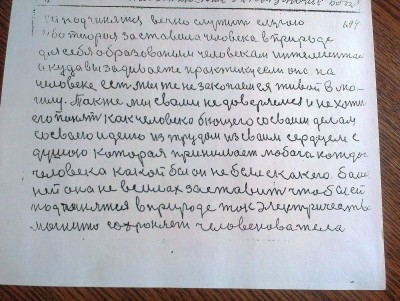 ей подчиняться вечно служить случаю 684
которая заставила человека в природе
для себя образованым человекам интелегентам
а куда вы задиваете практику если она на
человеке есть мы же не закопаемся живой в мо-
гилу. Также мы с вами не доверяемся и не хотим
его понять как человека бьющего со своим делом
со своею идеею из трудом из своим сердцем с
душою которая принимает любого каждого
человека какой бы он не был с какого. Бали
ней она не в силах заставить чтобы ей
подчинятся в природе ток электричество
магнито сохроняет человека тела